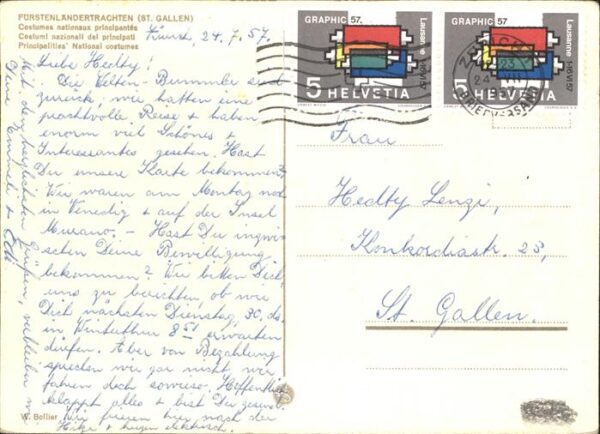 FÜRSTENLÄNDERTRACHTEN (ST. GALLEN)
Costumes nationaux principautés
Costumi nazionali dei principati
Principalities' National costumes
24. 7. 57.
Liebe Hedthy!
Die Welten-Bummler sind
zurück, wir hatten eine
prachtvolle Reise & haben
enorm viel Schönes &
Interessantes gesehen. Hast
Du unsere Karte bekommen?
Wir waren am Montag noch
in Venedig & auf der Insel
Murano. - Hast Du inzwi-
schen Deine Bewilligung
bekommen? Wir bitten Dich
uns zu berichten, ob wir
Dich nächsten Dienstag, 30. ds.
in Winterthur 8 51 erwarten
dürfen. Aber von Bezahlung
sprechen wir gar nicht, wir
fahren doch sowieso. Hoffentlich
klappt alles & bist Du gesund.
Wir hier nach der
Hitze & elektrisch.
Mit den herzlichsten Grüssen, verbleiben wir
Deine Emmeli & Edi
W. Bollier
GRAPHIC 57.
Lausanne 1-16 VI 57
5 HELVETIA
GRAPHIC 57
Lausanne 1-16 VI 57
5 HELVETIA
ZÜRICH
24. VII
BRIEFVERSAND
Frau
Hedthy Lenzi,
Konkordiastr. 23,
St. Gallen.